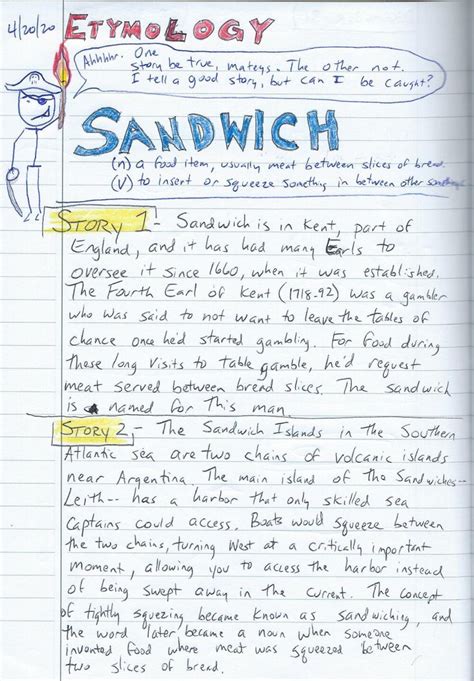 4/20/20 ETYMOLOGY
Ahhhhr. One
story be true, mateys. The other not.
I tell a good story, but can I be caught?
SANDWICH
(n) a food item, usually meat between slices of bread
(v) to insert or squeeze something in between other somethings
STORY 1 - Sandwich is in Kent, part of
England, and it has had many Earls to
oversee it since 1660, when it was established.
The Fourth Earl of Kent (1718-92) was a gambler
who was said to not want to leave the tables of
chance once he'd started gambling. For food during
these long visits to table gamble, he'd request
meat served between bread slices. The sandwich
is named for this man.
STORY 2 - The Sandwich Islands in the Southern
Atlantic sea are two chains of volcanic islands
near Argentina. The main island of the Sandwiches--
Leith-- has a harbor that only skilled sea
Captains could access. Boats would squeeze between
the two chains, turning West at a critically important
moment, allowing you to access the harbor instead
of being swept away in the current. The concept
of tightly squezing became known as sandwiching, and
the word later became a noun when someone
invented food where meat was squeezed between
two slices of bread.